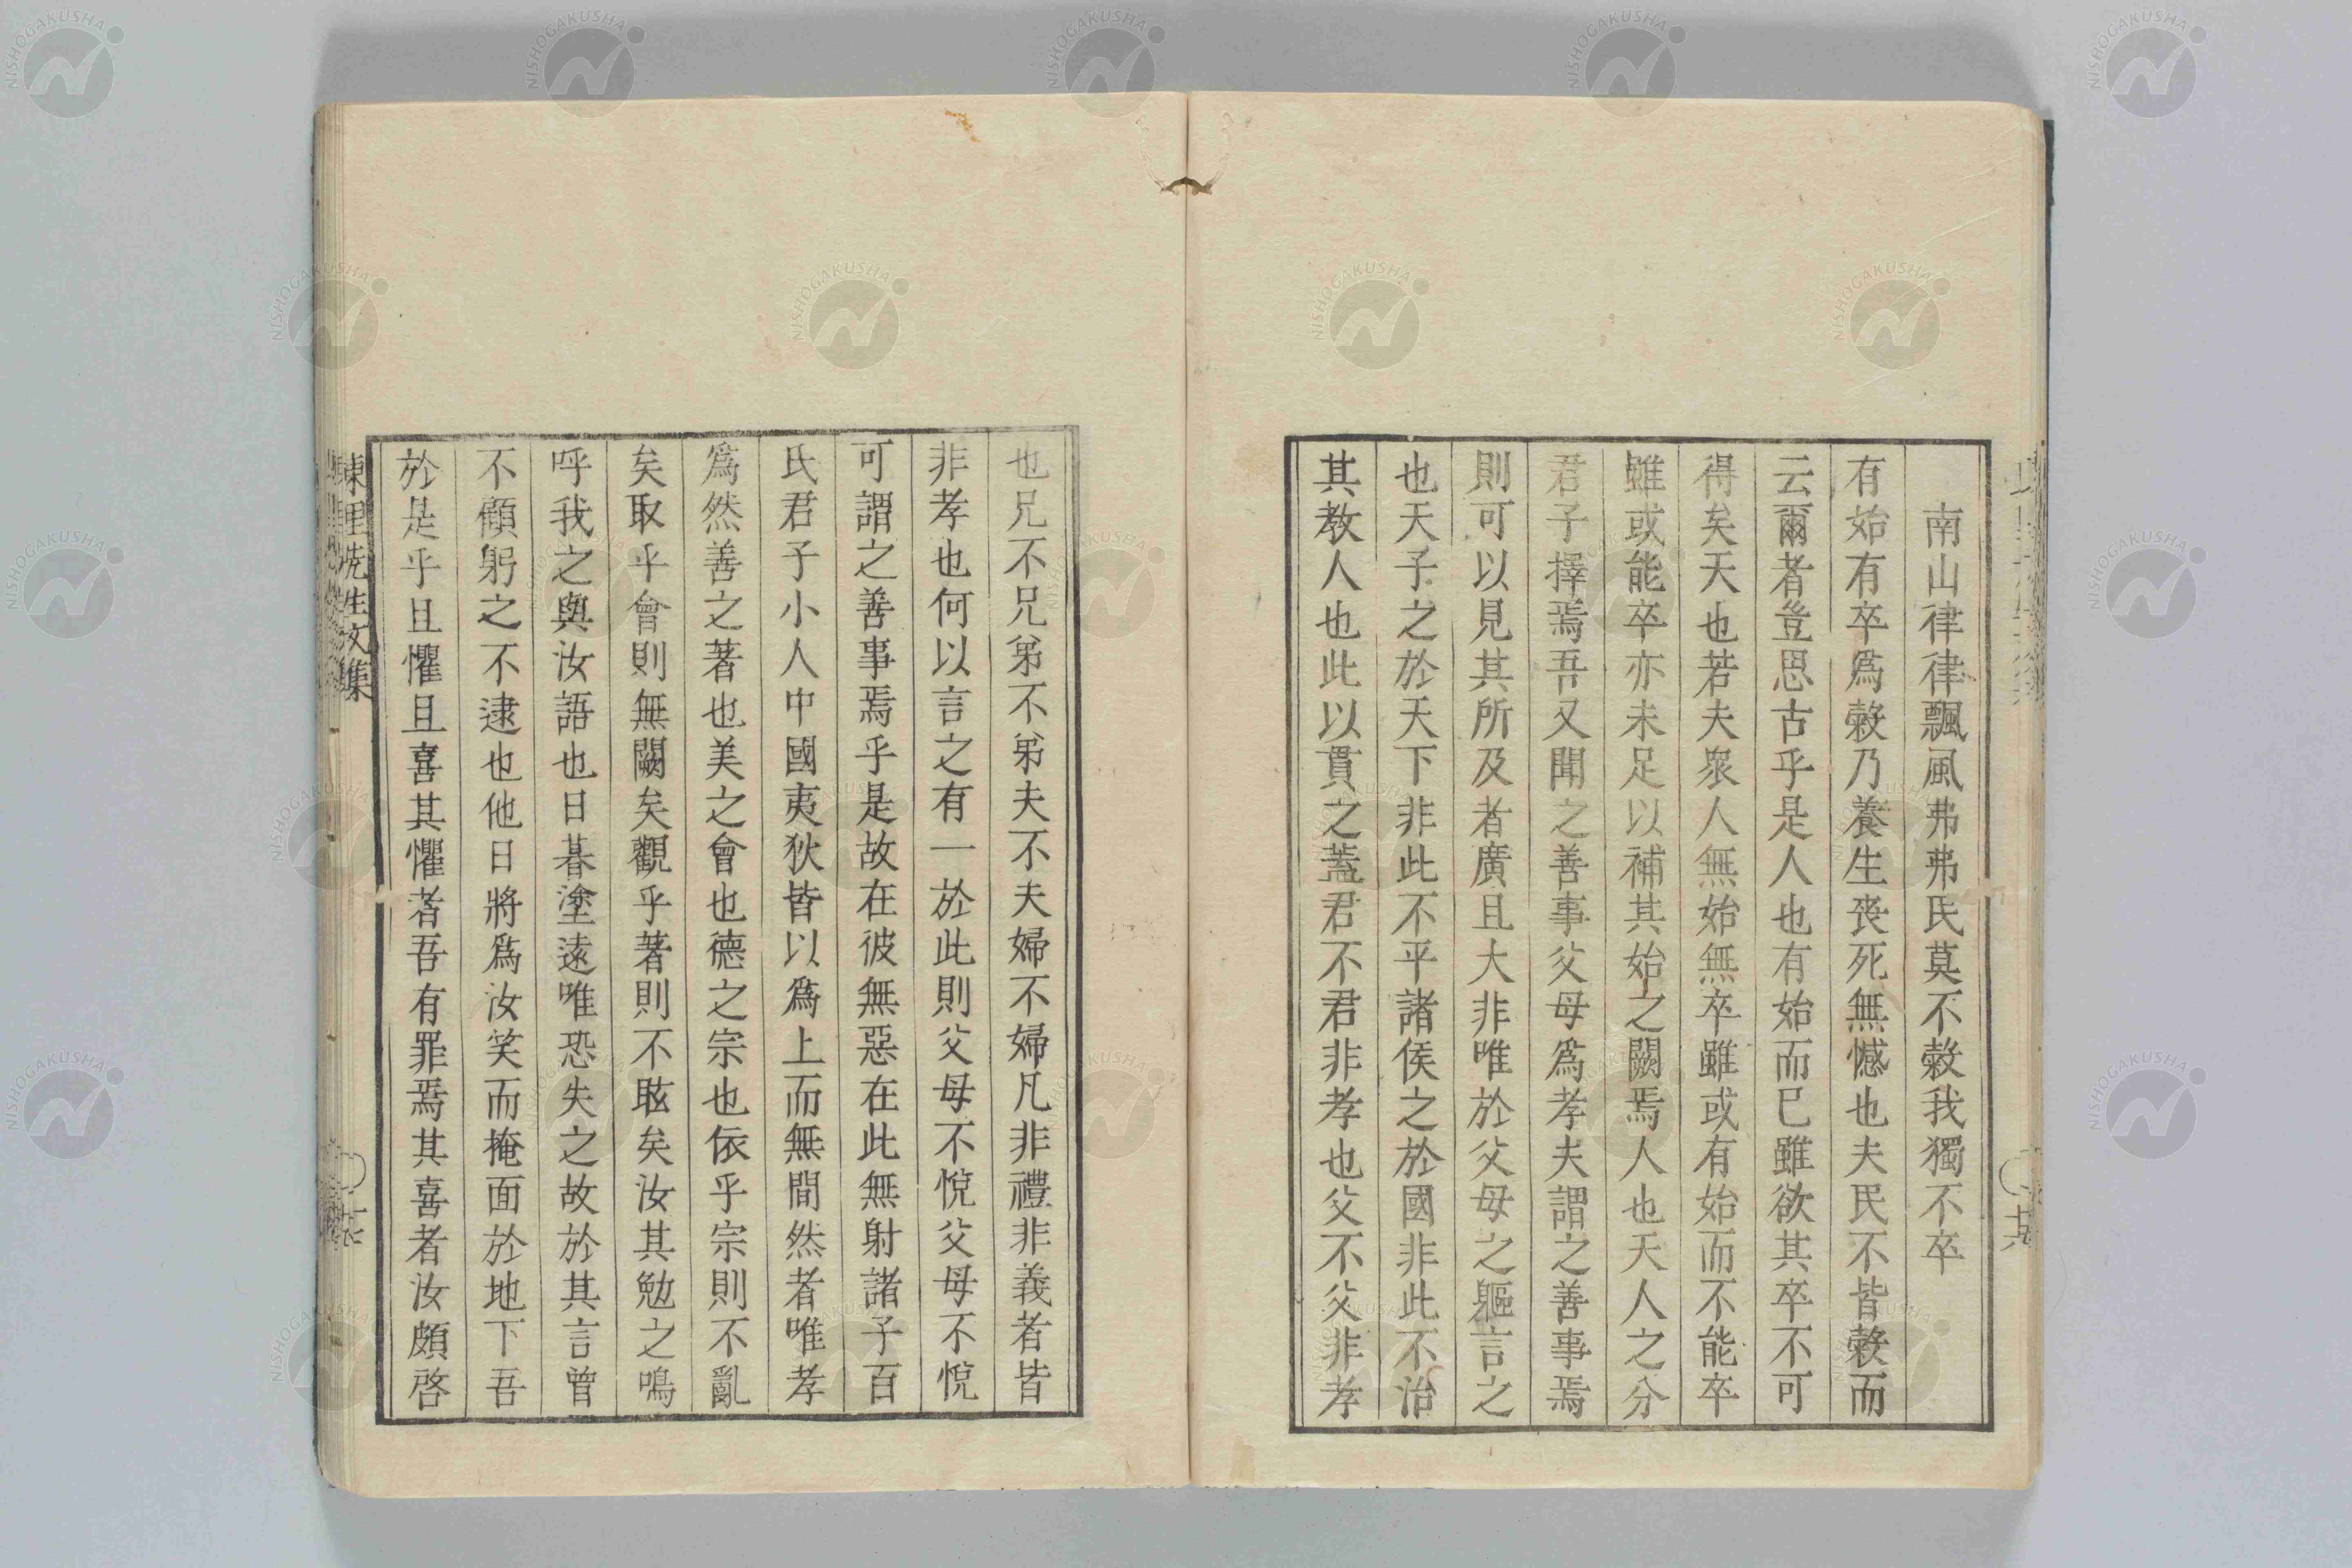 南山律律飄風弗弗民莫不穀我獨不卒
有始有卒爲穀乃養生喪死無憾也夫民不皆穀而
云爾者豈思古乎是人也有始而已雖欲其卒不可
得矣天也若夫衆人無始無卒雖或有始而不能卒
雖或能卒亦未足以補其始之闕焉人也天人之分
君子擇焉吾又聞之善事父母爲孝夫謂之善事焉
則可以見其所及者廣且大非唯於父母之軀言之
也天子之於天下非此不平諸侯之於國非此不治
其教人也此以貫之蓋君不君非孝也父不父非孝
也兄不兄弟不弟夫不夫婦不婦凡非禮非義者皆
非孝也何以言之有一於此則父母不悅父母不悅
可謂之善事焉乎是故在彼無惡在此無射諸子百
氏君子小人中國夷狄皆以爲上而無間然者唯孝
爲然善之著也美之會也德之宗也依乎宗則不亂
矣取乎會則無闕矣觀乎著則不眩矣汝其勉之鳴
呼我之與汝語也日暮塗遠唯恐失之故於其言曾
不顧躬之不逮也他日將爲汝笑而掩面於地下吾
於是乎且懼且喜其懼者吾有罪焉其喜者汝頗啓
東里先生文集
NISHOGAKUSHA